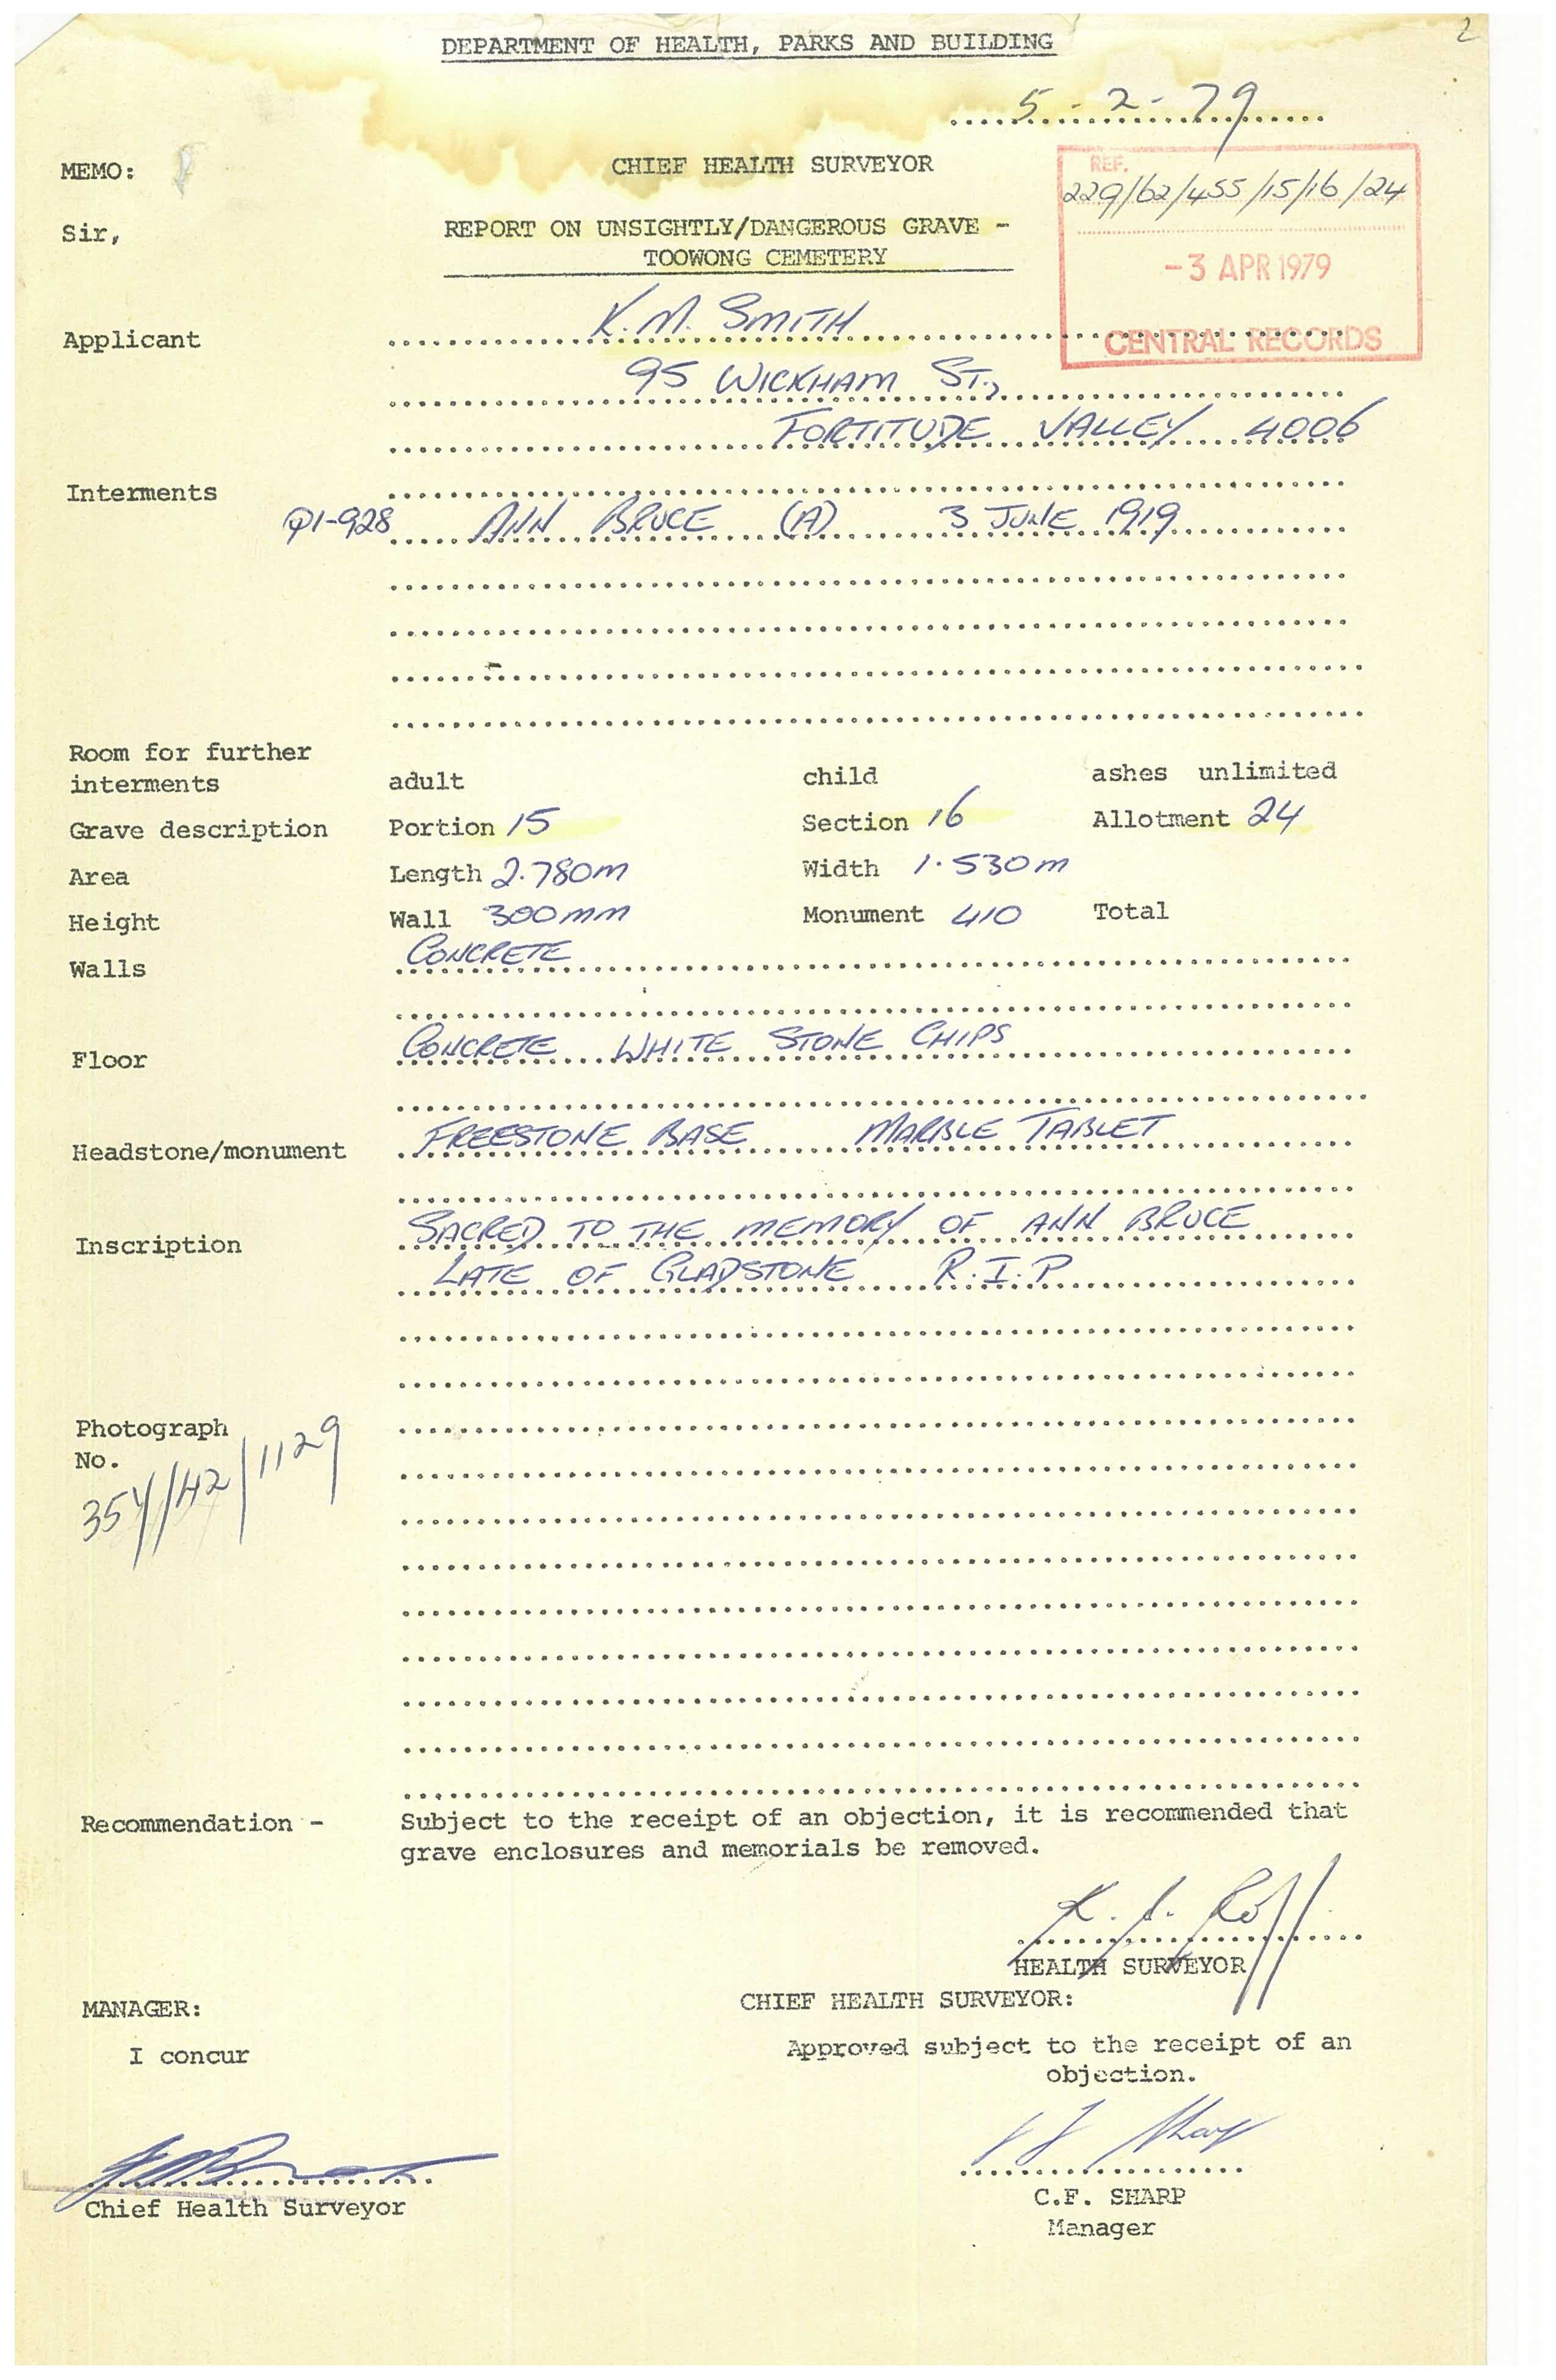 2
DEPARTMENT OF HEALTH, PARKS AND BUILDING
5-2-79
MEMO:
CHIEF HEALTH SURVEYOR
REF.
229/62/455/15/16/24
Sir,
REPORT ON UNSIGHTLY/DANGEROUS GRAVE -
TOOWONG CEMETERY
-3 APR 1979
CENTRAL RECORDS
Applicant K.M. SMITH
95 WICKHAM ST.,
FORTITUDE VALLEY 4006
Interments
ANN BRUCE (A) 3 JUNE 1919
Room for further
interments adult child ashes unlimited
Grave description Portion 15 Section 16 Allotment 24
Area Length 2.780m Width 1.530m
Height Wall 300mm Monument 410 Total
Walls CONCRETE
Floor CONCRETE WHITE STONE CHIPS
Headstone/monument FREESTONE BASE MARBLE TABLET
Inscription SACRED TO THE MEMORY OF ANN BRUCE
LATE OF GLADSTONE R.I.P
Photograph
No.
Recommendation - Subject to the receipt of an objection, it is recommended that
grave enclosures and memorials be removed.
HEALTH SURVEYOR
MANAGER:
CHIEF HEALTH SURVEYOR:
I concur
Approved subject to the receipt of an
objection.
Chief Health Surveyor
C.F. SHARP
Manager